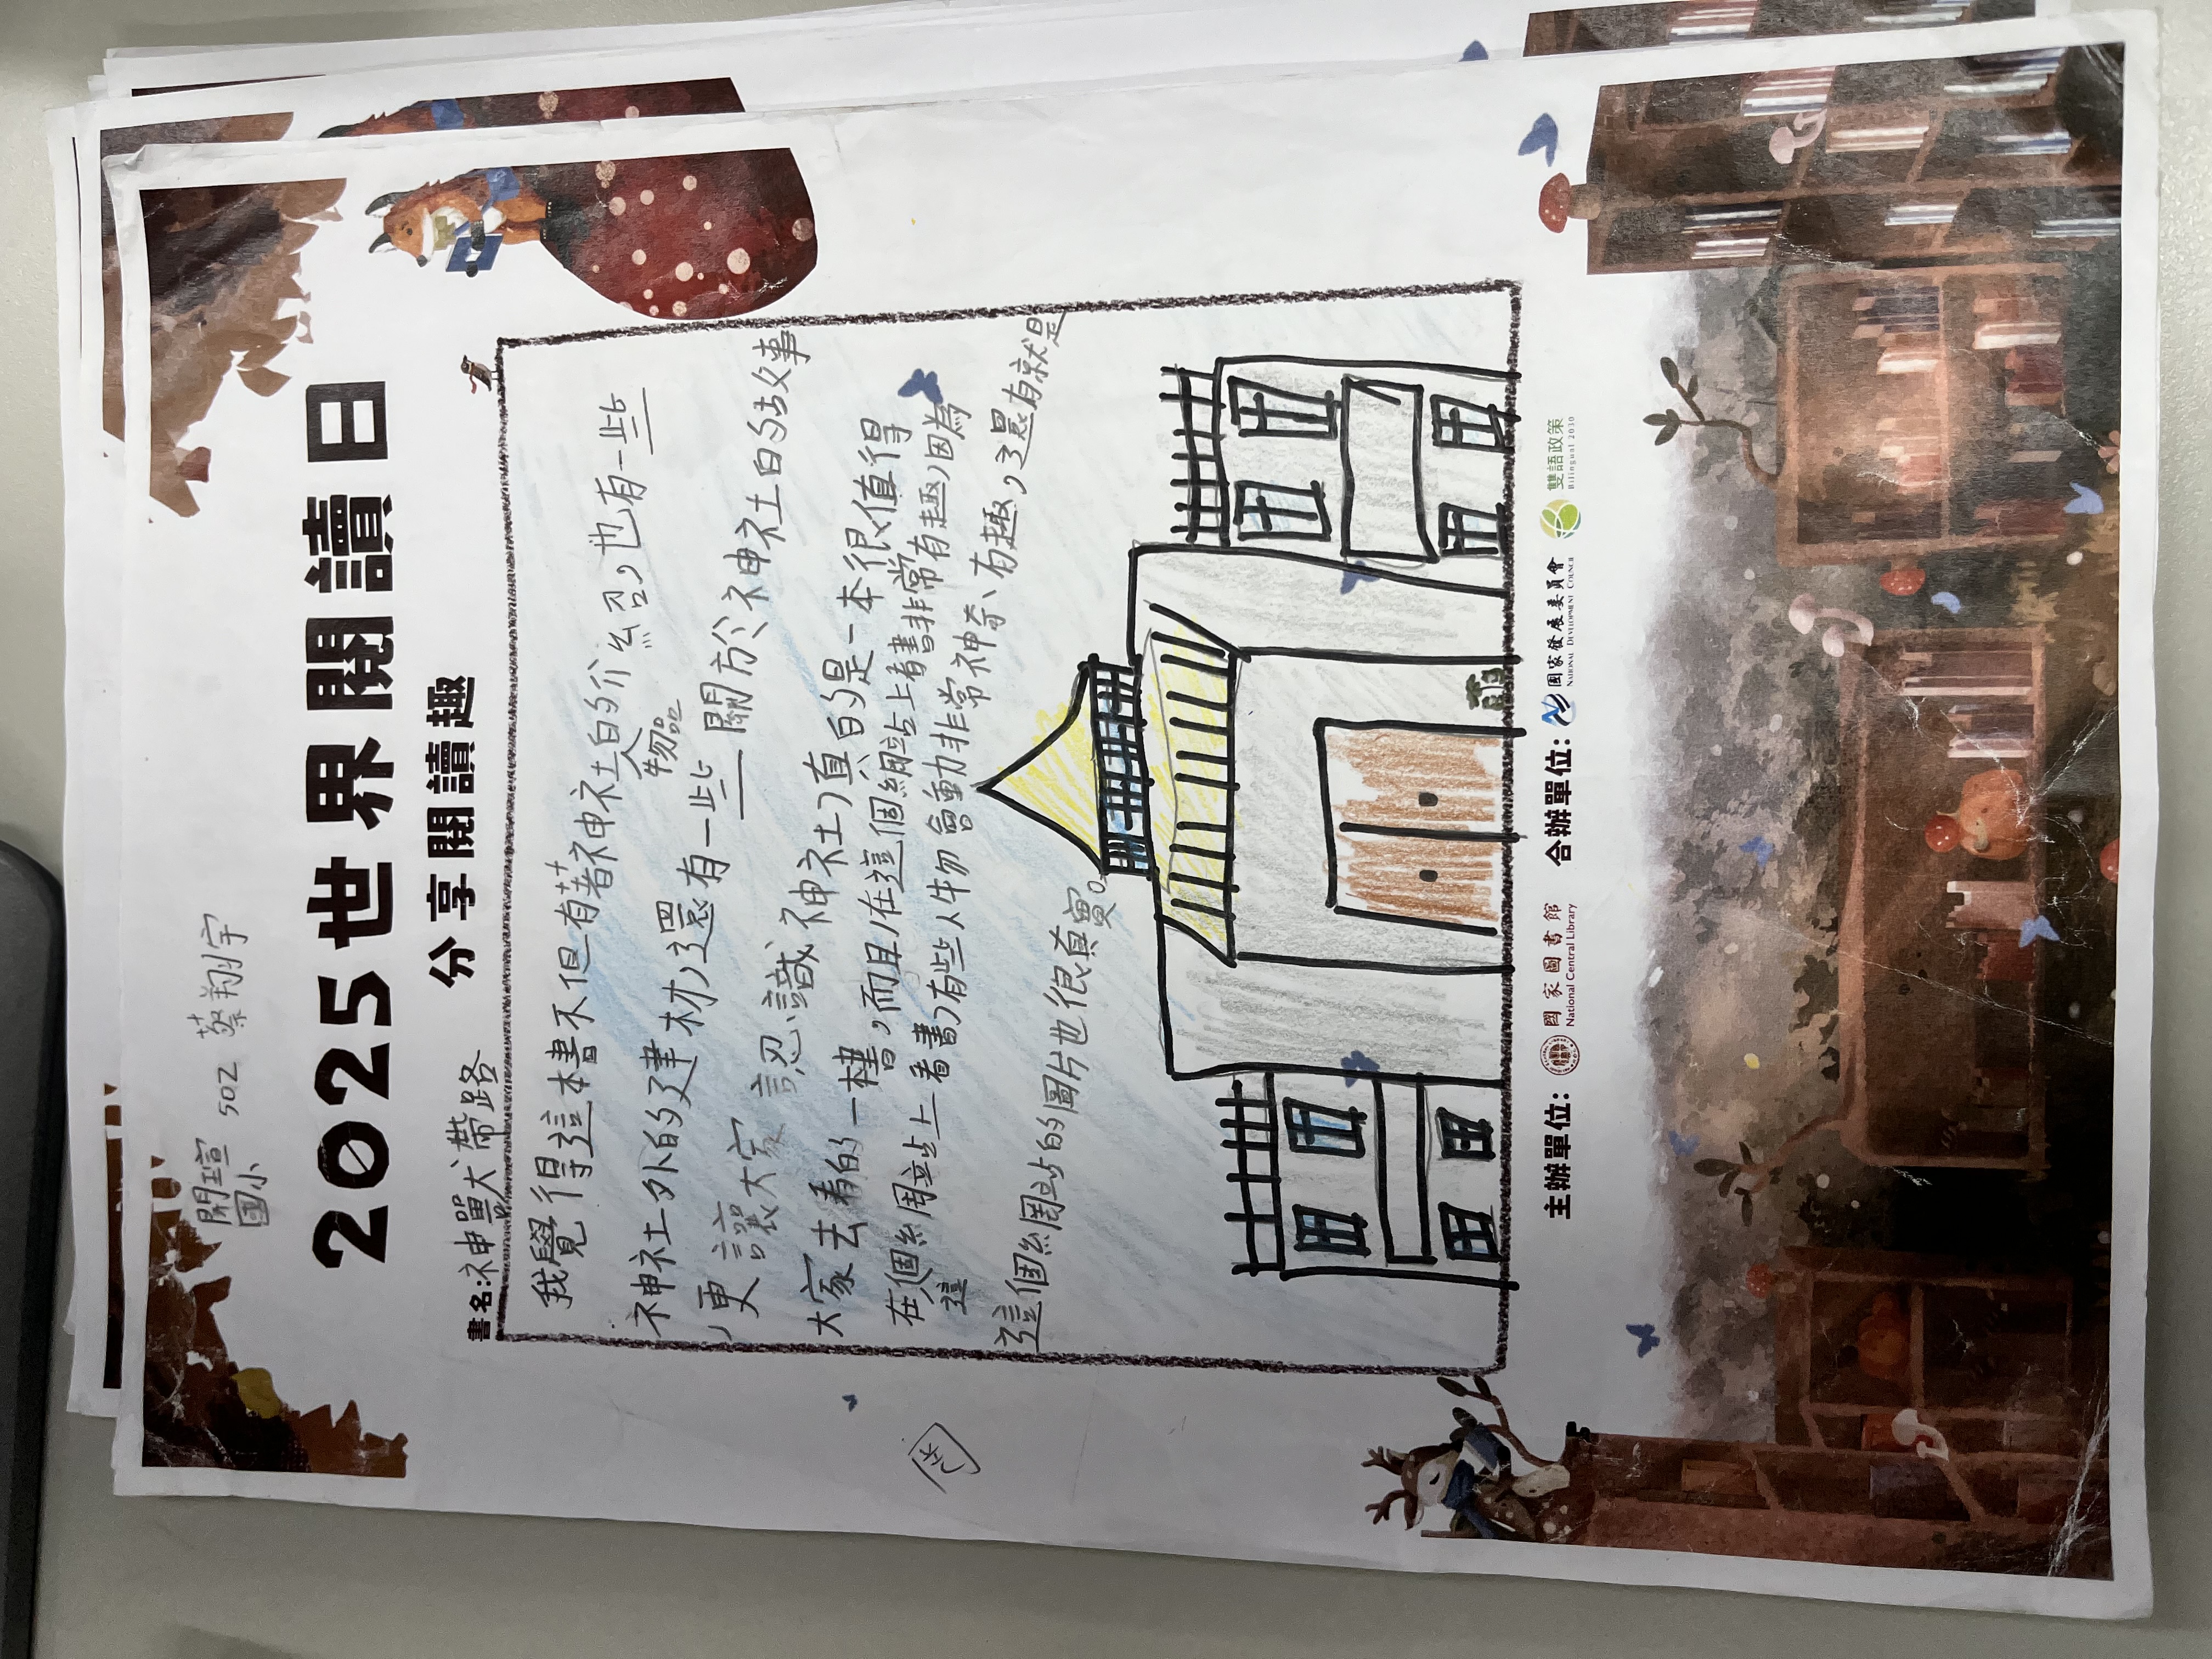 開瑄
國小
502 蔡翔宇
2025世界閱讀日
分享閱讀趣
書名:神單犬帶路
我覺得這本書不但有著神社的介紹,也有一些
人物品
神社外的建材,還有一些關於神社的故事
,更讓大家認識神社,真的是一本很值得
大家去看的一本書,而且在這個網站上看書非常有趣,因為
在這個網站上看書,有些人物會動非常神奇、有趣,還有就是
這個網站的圖片也很真實。
主辦單位:
國家圖書館
National Central Library
合辦單位:
國家發展委員會
National Development Council
雙語政策
Bilingual 2030